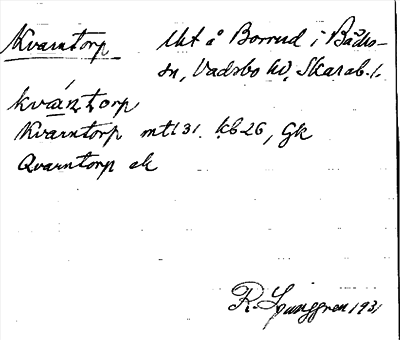 Kvarntorp Utt å Borrud i Bäcks-
sn, Vadsbo hd, Skarab. l.
kvántorp
Kvarntorp mtl 31. kb 26, Gk
Qvarntorp ek
R. Ljunggren 1931